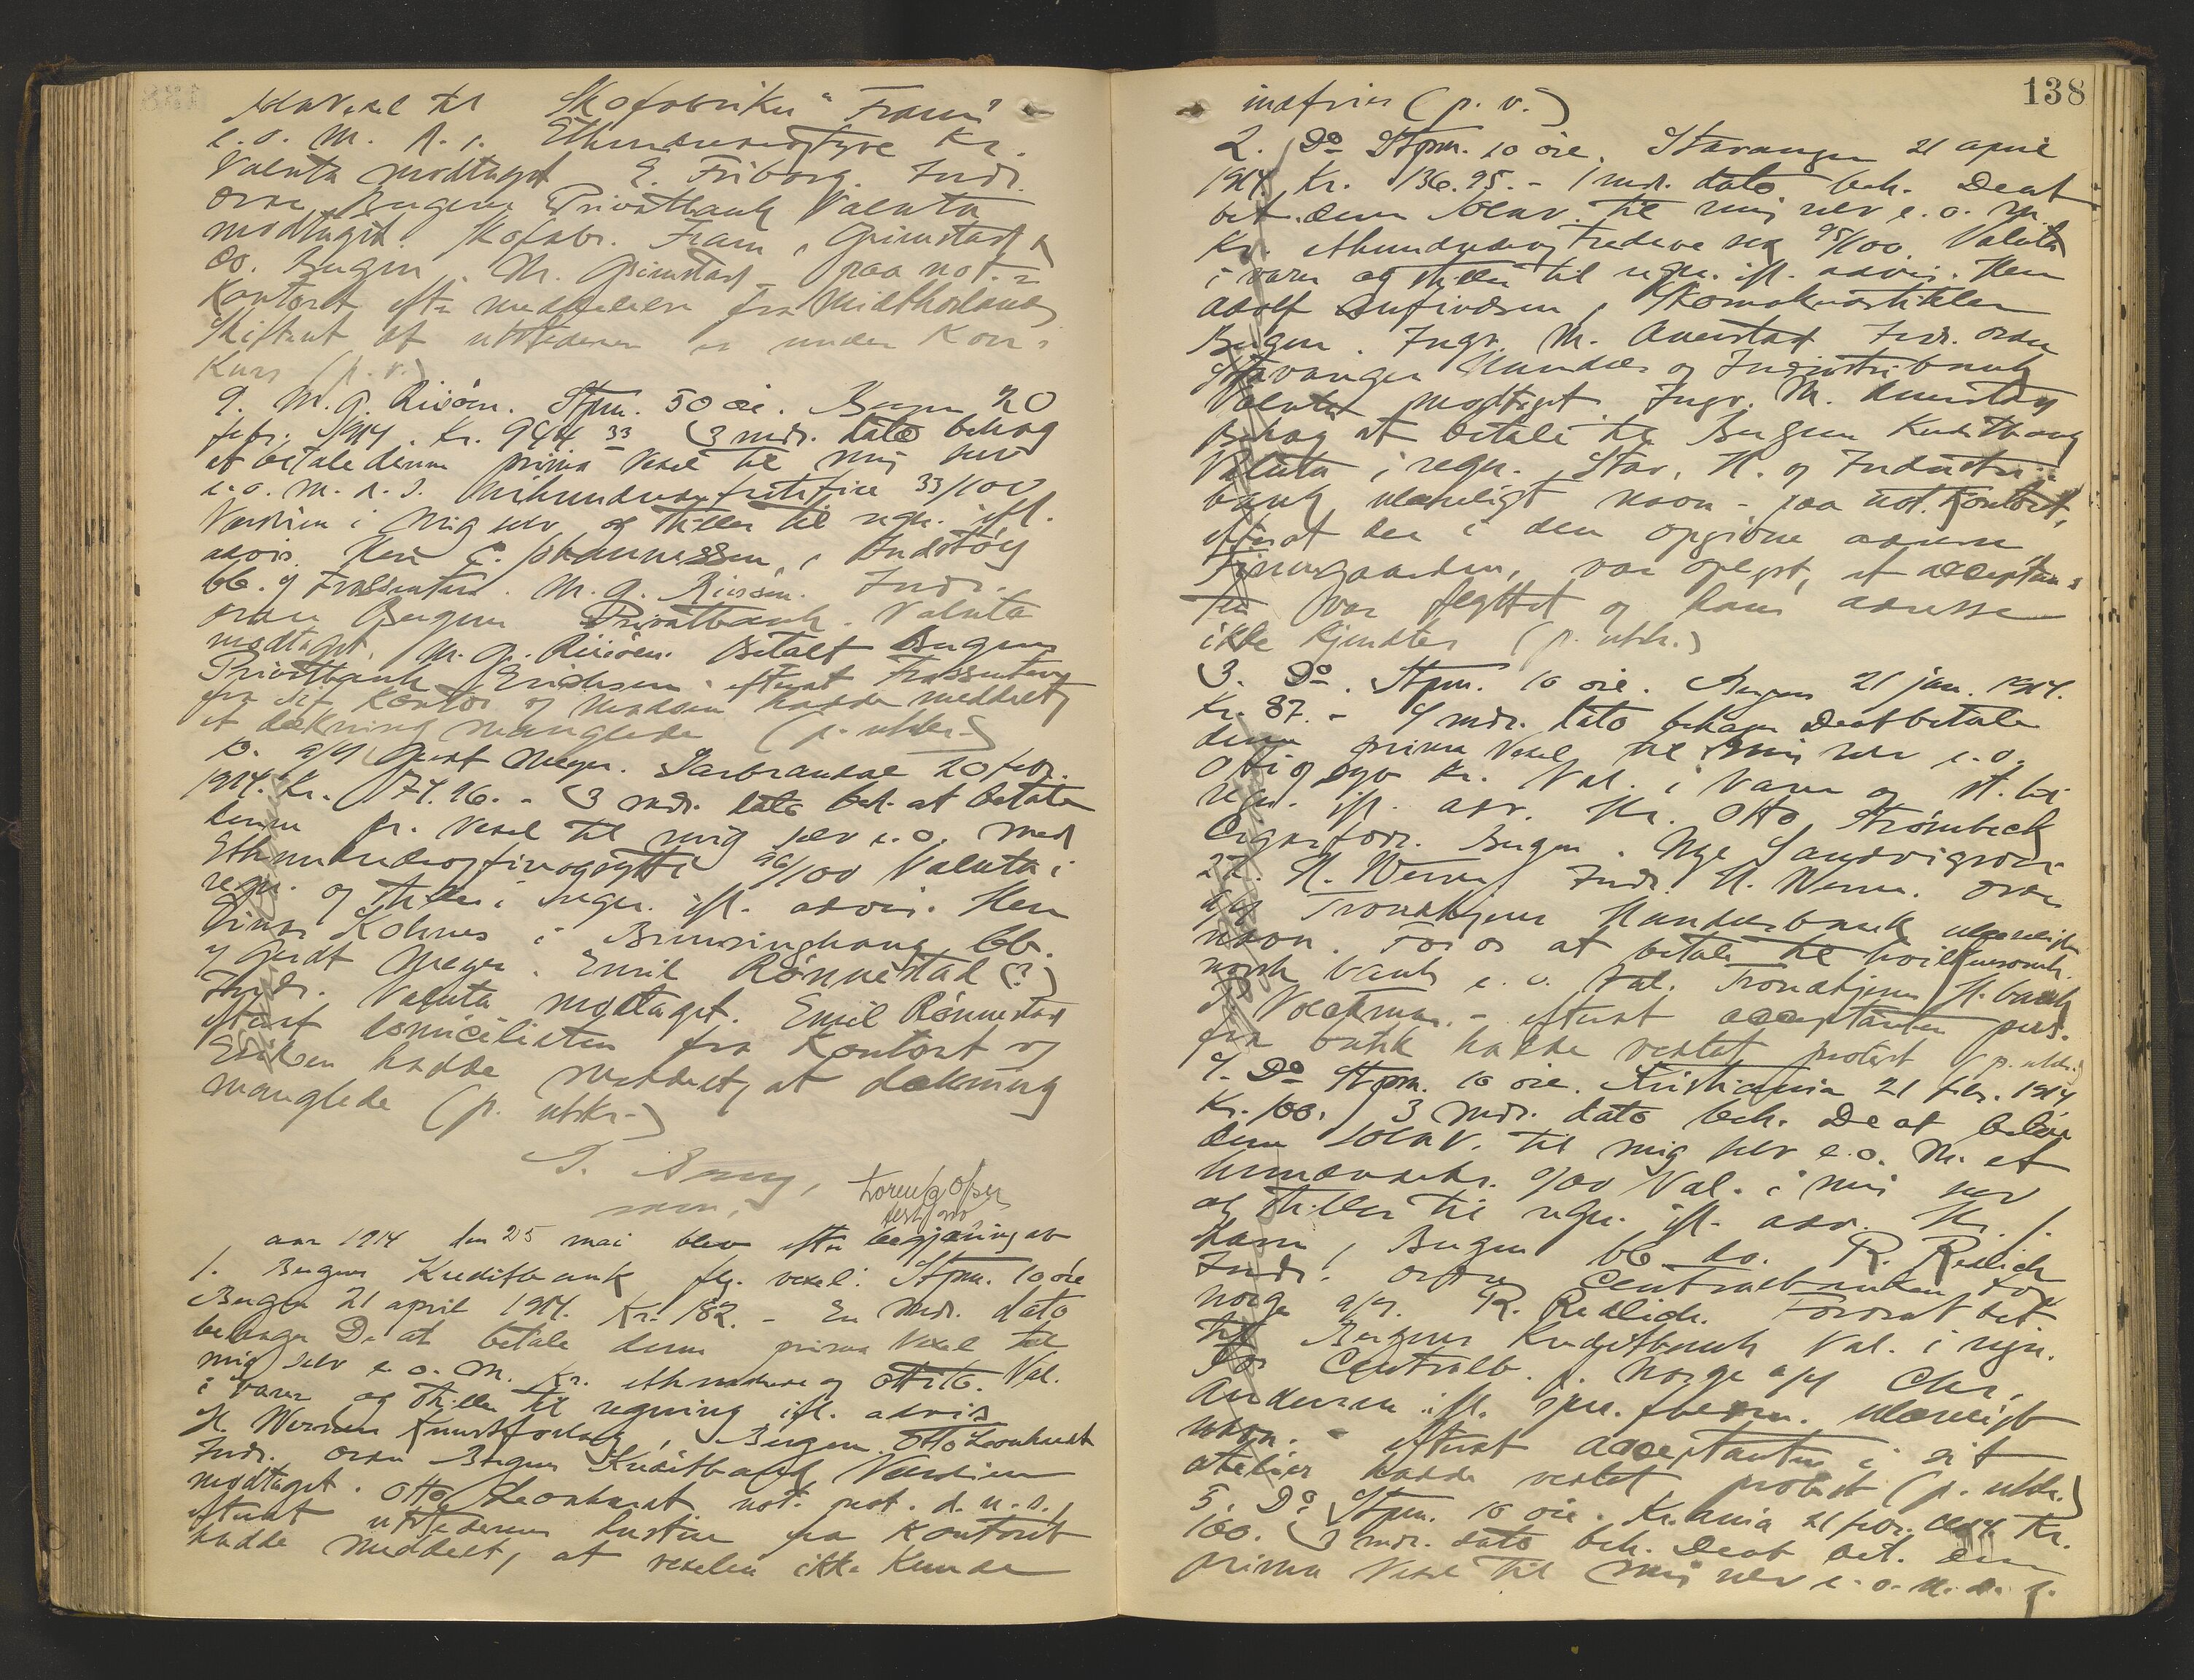 Solavexel til Skofabriken "Fram"
e. o. m. n. s. Ethundredeogtyve Kr.
Valuta modtaget E. Friborg. Indr.
ordre Bergens Privatbank Valuta
modtaget. Skofabr. Fram, Grimstad &
Co. Bergen. M. Grimstad paa not.
Kontoret efter meddelelse fra Midthordland
Skifteret at utstederen er under Kon-
kurs (p. v.)
9. M. G. Riisöen. Stpm. 50 öre. Bergen 20
febr. 1914. Kr. 944 33 3 mdr. dato behag
at betale denne prima Vexel til mig selv
e. o. m. n. s. Nihundredeogfirtifire 33/100
Værdien i mig selv og stilles til regn. ifl.
advis. Herr C. Johannessen, Indstöy
bb. og Trassenten. M. G. Riisöen. Indr.
ordre Bergens Privatbank. Valuta
modtaget. M. G. Riisöen. Betalt Bergens
Privatbank Erichsen. efterat Trassenten
fra sit Kontor og hadde meddelt,
at dækning manglede (p. utskr.)
10. a/s Gerdt Meyer. Garbrandal 20 febr.
1914. Kr. 174.96. - 3 mdr. dato beh. at betale
denne pr. Vexel til mig selv e. o. med
Ethundredeogfireogsytti 96/100 Valuta i
regn. og stilles i regn. ifl. advis. Herr
Einar Kolnes i Brunsinghaug, bb.
og Gerdt Meyer. Emil Rönnestad (?)
Indr. Valuta modtaget. Emil Rönnestad
efterat domicilisten fra Kontoret v/
Eriksen hadde meddelt, at dækning
manglede (p. utskr.)
Lorentz Olsen
aar 1914 den 25 mai blev efter begjæring av
1. Bergens Kreditbank flg. vexel: Stpm. 10 öre
Bergen 21 april 1914. Kr. 182. - En mdr. dato
behager De at betale denne prima Vexel til
mig selv e. o. m. Kr. ethundrede og otti to. Val.
i varer og stilles til regning ifl. advis
H. Werners Kunstforlag, Bergen. Otto Leonhardt
Indr. ordre Bergens Kreditbank Værdien
modtaget. Otto Leonhardt not. prot. d. u. s.,
efterat utstederens hustru fra Kontoret
hadde meddelt, at vexelen ikke kunde
138
indfries (p. v.)
2. Do Stpm. 10 öre. Stavanger 21 april
1914. Kr. 136.95. - 1 mdr. dato beh. De at
bet. denne solav. til mig selv e. o. m.
Kr. ethundredeog tredeve sex 95/100. Valuta
i varer og stilles til regn. ifl. advis. Herr
Adolf Anfindsen, Skomakerartikler
Bergen. Ingv. M. Auestad Indr. ordre
Stavanger Handels og Industribank
Valuta modtaget Ingv. M. Auestad
Behag at betale til Bergens Kreditbank
Valuta i regn. Stav. H. og Industri-
bank ulæseligt navn - paa not. Kontoret,
efterat der i den opgivne adresse
Finnegaarden, var oplyst, at acceptan-
ten var flyttet og hans adresse
ikke kjendtes (p. utskr.)
3. Do. Stpm. 10 öre. Bergen 21 jan. 1914.
Kr. 87. - 4 mdr. dato behager De at betale
denne prima Vexel til mig selv e. o.
Otti og syv Kr. Val. i varer og st. til
regn. ifl. adv. Hr. Otto Strömbeck
Cigarforr. Bergen. Nye Sandvigsvei
22. H. Werner Indr. H. Werner. ordre
a/s Trondhjems Handelsbank ulæseligt
navn. For os at betale til hvilkensomh.
norsk bank e. o. Val. Trondhjems H. bank
Voldtman. - efterat acceptanten pers.
fra butik hadde vedtat protest (p. utskr.)
4. Do Stpm. 10 öre. Kristiania 21 febr. 1914
Kr. 100. 3 mdr. dato beh. De at betale
denne solav. til mig selv e. o. m. et
hundredekr. 0/00 Val. i mig selv
og stilles til regn. ifl. adv. Hr. J.
Ham, Bergen bb do. R. Redlich
Indr. ordre Centralbanken for
Norge a/s. R. Redlich. Forovrat bet.
til Bergens Kreditbank Val. i regn.
for Centralb. f. Norge a/s Chr.
Andersen ifl. spec. fuldm. ulæseligt
navn. - efterat acceptanten i sit
atelier hadde vedtat protest (p. utskr.)
5. Do. Stpm. 10 öre. Kr.ania 21 febr. 1914 Kr.
100. 3 mdr. dato beh. De at bet. denne
prima Vexel til mig selv e. o. m. n. s.